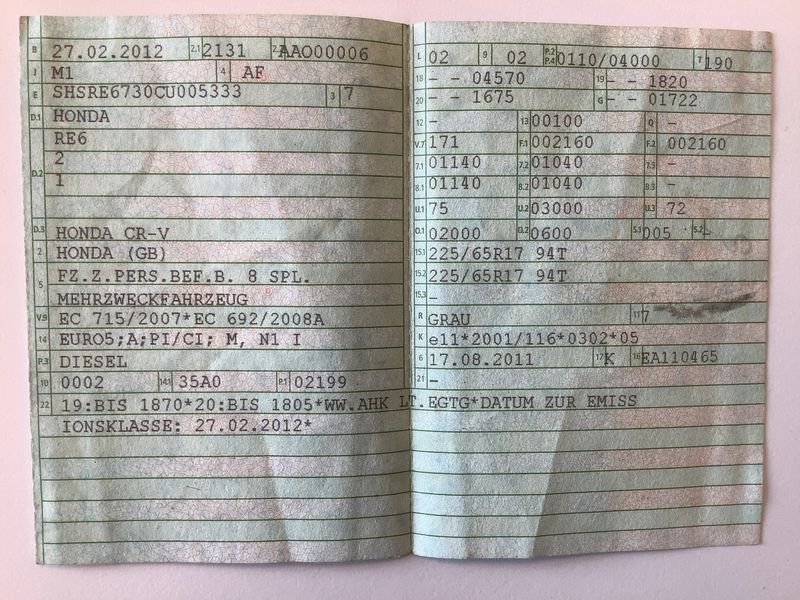 B 27.02.2012 2.1 2131 2.2 AAO00006
J M1 4 AF
E SHSRE6730CU005333 3 7
D.1 HONDA
RE6
D.2 2
1
D.3 HONDA CR-V
2 HONDA (GB)
5 FZ.Z.PERS.BEF.B. 8 SPL.
MEHRZWECKFAHRZEUG
V.9 EC 715/2007*EC 692/2008A
14 EURO5;A;PI/CI; M, N1 I
P.3 DIESEL
10 0002 14.1 35A0 P.1 02199
22 19:BIS 1870*20:BIS 1805*WW.AHK LT.EGTG*DATUM ZUR EMISS
IONSKLASSE: 27.02.2012*
L 02 9 02 P.2 P.4 0110/04000 T 190
18 - - 04570 19 - - 1820
20 - - 1675 G - - 01722
12 - 13 00100 Q -
V.7 171 F.1 002160 F.2 002160
7.1 01140 7.2 01040 7.3 -
8.1 01140 8.2 01040 8.3 -
U.1 75 U.2 03000 U.3 72
O.1 02000 O.2 0600 S.1 005 S.2 -
15.1 225/65R17 94T
15.2 225/65R17 94T
15.3 -
R GRAU 11 7
K e11*2001/116*0302*05
6 17.08.2011 17 K 16 EA110465
21 -